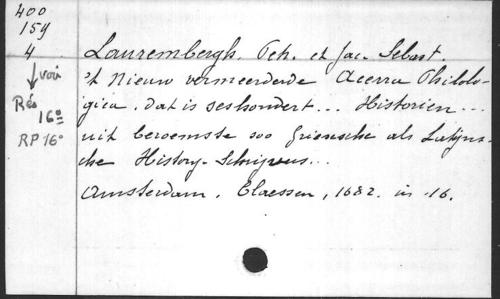 400
159
4
↓ voir
Rés
16º
RP 16º
Lauremberg, Petr. et Jac. Sebast.
't Nieuw vermeerderde Acerra Philolo-
gica. Dat is seshondert... Historien...
uit beroemste soo Grieksche als Latijns-
che History-Schrijvers...
Amsterdam, Claessen, 1682. in-16.